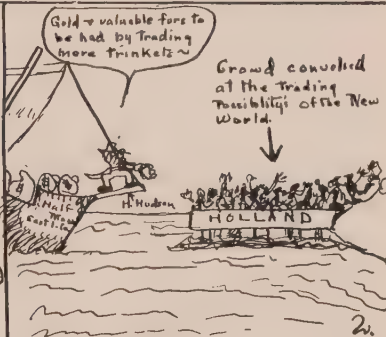 Gold + valuable furs to
be had by trading
more trinkets ~
Crowd convulsed
at the trading
Possiblity's of the New
World.
H. Hudson
Half
Moon
HOLLAND
2.